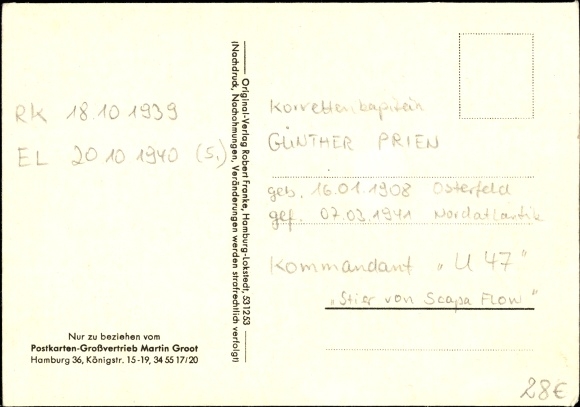 RK 18.10 1939
EL 20 10 1940 (5.)
Nur zu beziehen vom
Postkarten-Großvertrieb Martin Groot
Hamburg 36, Königstr. 15-19, 34 55 17/20
Original-Verlag Robert Franke, Hamburg-Lokstedt, 531253
(Nachdruck, Nachahmungen, Veränderungen werden strafrechtlich verfolgt)
Korvettenkapitein
GÜNTHER PRIEN
geb. 16.01.1908 Osterfeld
gef. 07.03.1941 Nordatlantik
Kommandant "U 47"
"Stier von Scapa Flow"
28€